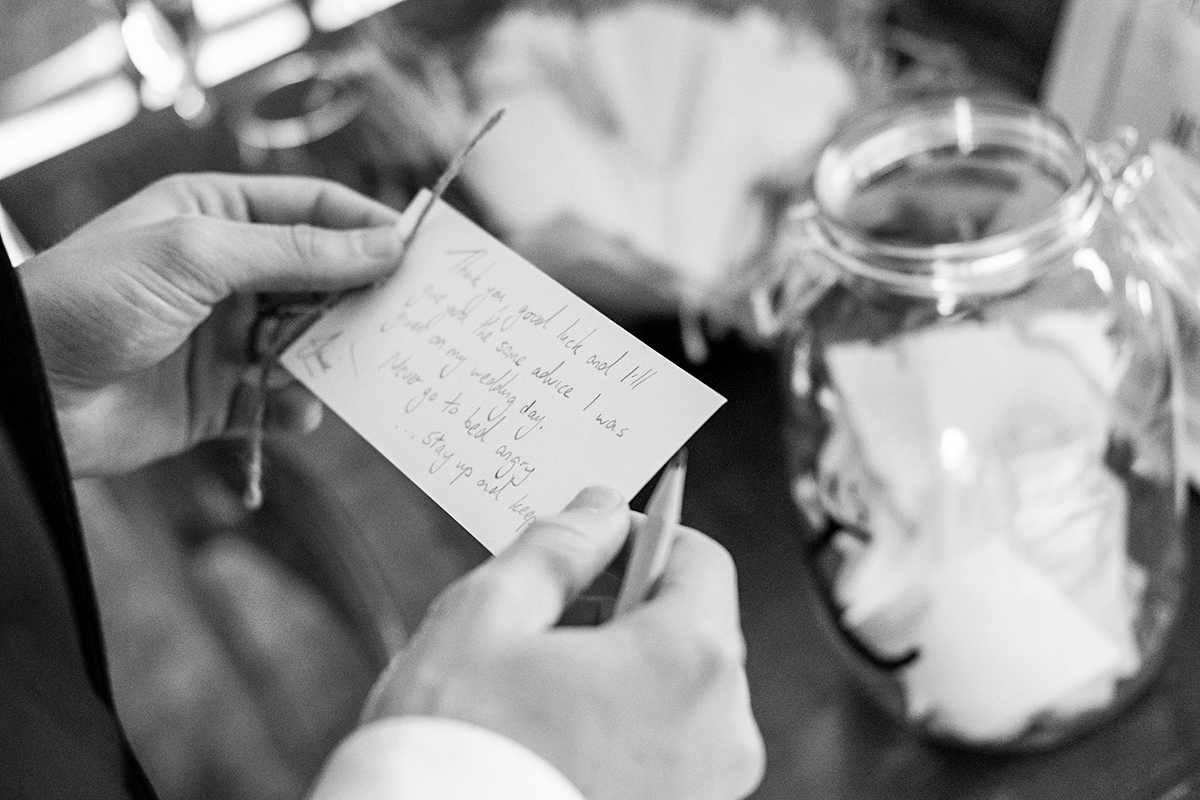 Thank you, good luck and I'll
give you the same advice I was
given on my wedding day.
Never go to bed angry
... stay up and keep